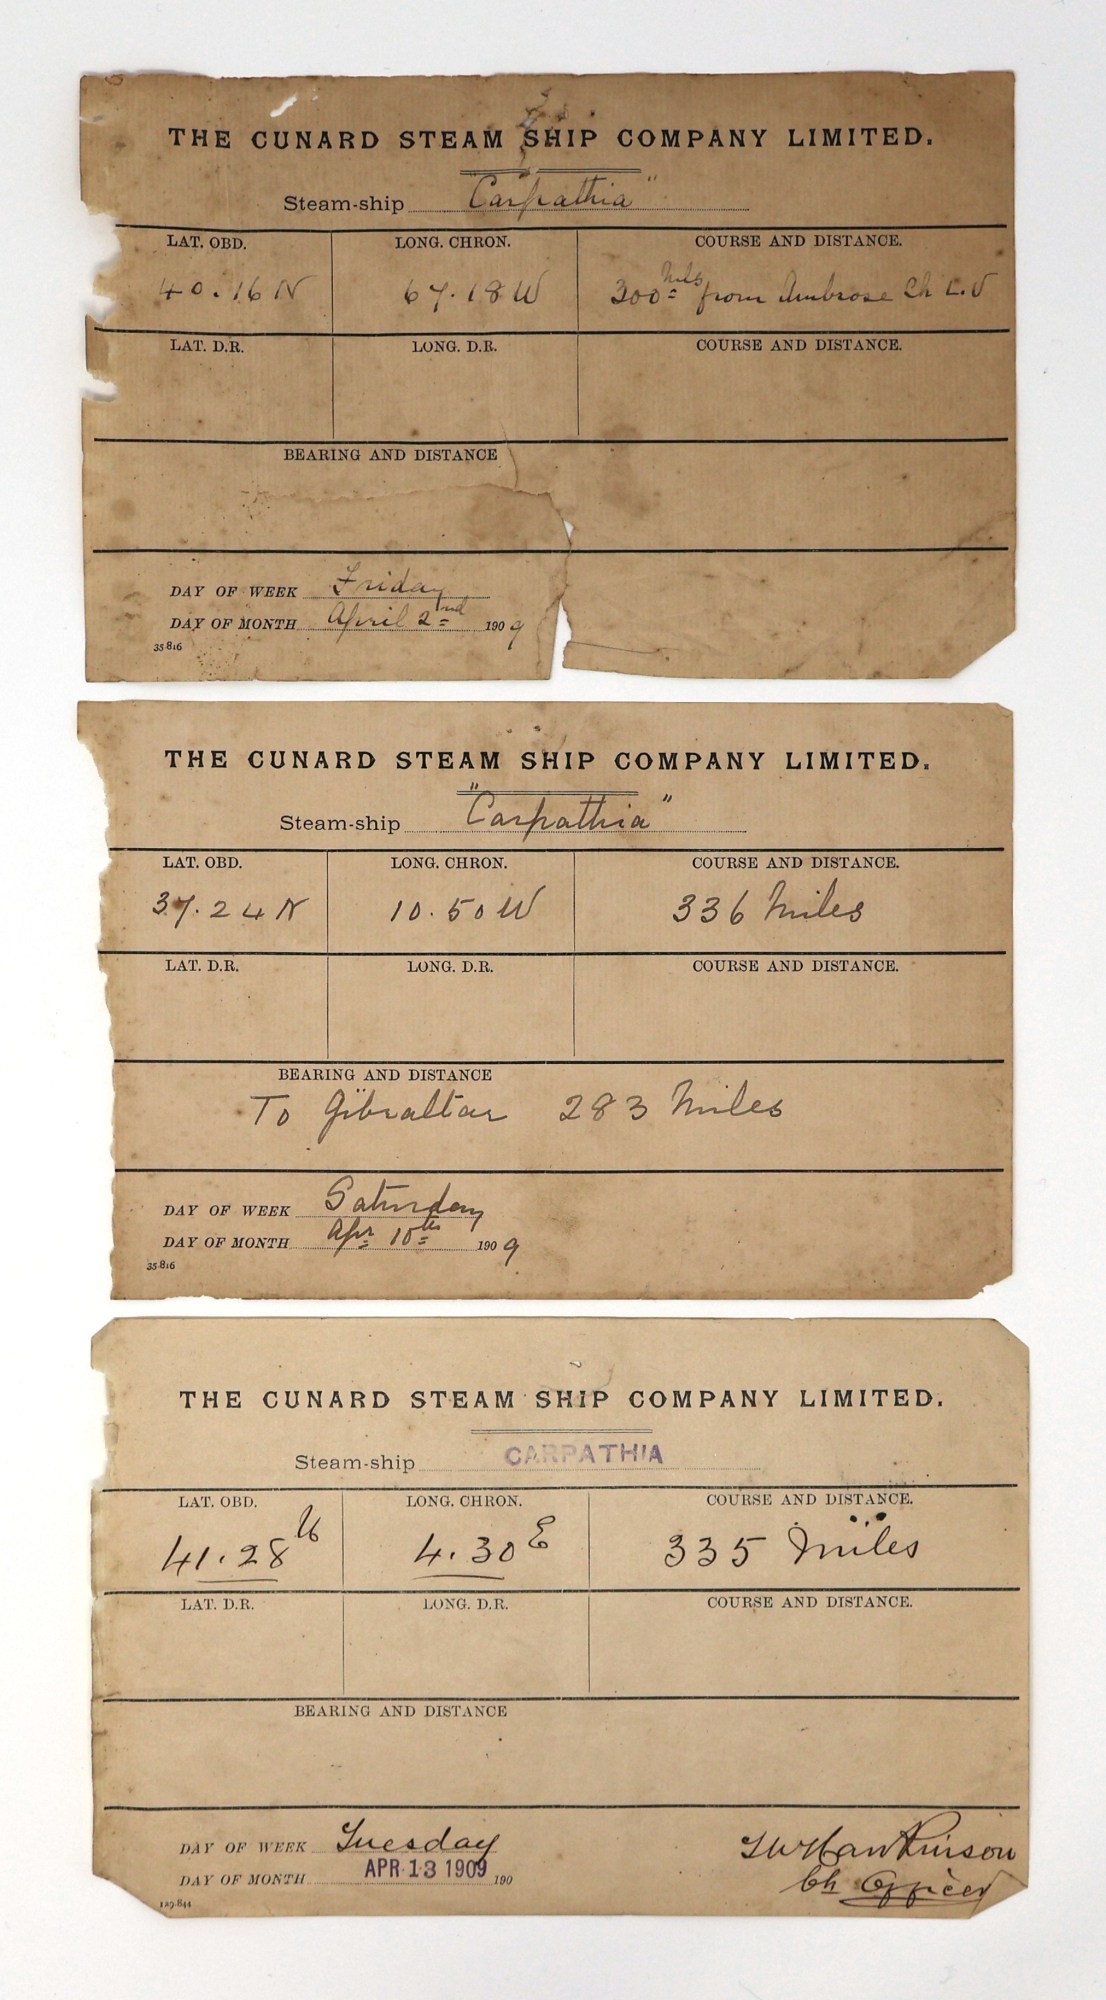 THE CUNARD STEAM SHIP COMPANY LIMITED.
Steam-ship "Carpathia"
LAT. OBD. LONG. CHRON. COURSE AND DISTANCE.
40.16 N 67.18 W 300 mls from Ambrose Ch L.V
LAT. D.R. LONG. D.R. COURSE AND DISTANCE.
BEARING AND DISTANCE
DAY OF WEEK Friday
DAY OF MONTH April 2nd 1909
35-816
THE CUNARD STEAM SHIP COMPANY LIMITED.
Steam-ship "Carpathia"
LAT. OBD. LONG. CHRON. COURSE AND DISTANCE.
37.24 N 10.50 W 336 Miles
LAT. D.R. LONG. D.R. COURSE AND DISTANCE.
BEARING AND DISTANCE
To Gibraltar 283 Miles
DAY OF WEEK Saturday
DAY OF MONTH Apr 10th 1909
35-816
THE CUNARD STEAM SHIP COMPANY LIMITED.
Steam-ship CARPATHIA
LAT. OBD. LONG. CHRON. COURSE AND DISTANCE.
41.28 N 4.30 E 335 Miles
LAT. D.R. LONG. D.R. COURSE AND DISTANCE.
BEARING AND DISTANCE
DAY OF WEEK Tuesday
DAY OF MONTH APR 13 1909 190
Hankinson
Ch Officer
129-844